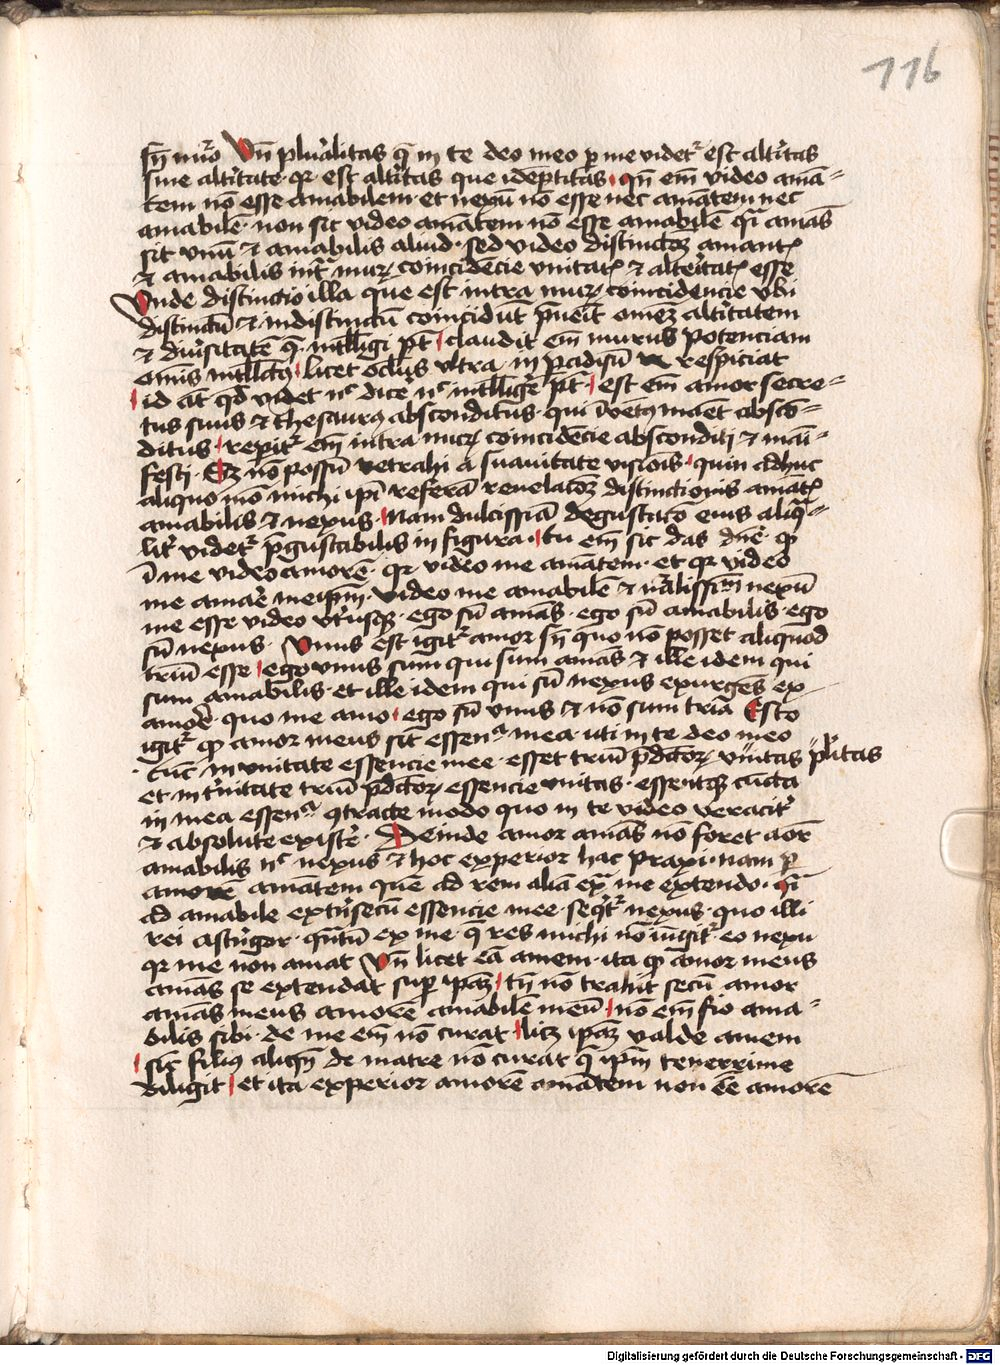 116
sn̄ nūo Vn̄ pluʼalitas q̄ in te deo meo p me videtʼ est altʼitas
sine altʼitate qꝛ est altʼitas que idēptitas qn̄ em̄ video amā=
tem nō esse amabilem et nexū nō esse nec amātem nec
amabilē non sic video amātem nō esse amabilē qͣi amās
sit vnū ⁊ amabilis aliud sed video distinctōꝫ amantꝭ
⁊ amabilis intͣ murꝝ coincidēcie vnitatꝭ ⁊ altʼitatꝭ esse
Vnde distinctio illa que est intra murꝝ coincidencie vbi
distinctū ⁊ indistinctū coincidūt p̄ueīt omēꝫ altʼitatem
⁊ diuʼsitatē q̄ intllīgi pt̄ claudit em̄ murus potenciam
om̄is intllc̄tꝯ licet oclūs vltra in padisū respiciat
id āt qd̄ videt nͨ dicʼe nͨ intlligʼe pt̄ est em̄ amor secre=
tus suus ⁊ thesaurꝯ absconditus qui īuētꝯ manet absco=
ditus repitʼ em̄ intra murꝝ coincidēcie absconditi ⁊ mani=
festi Sꝫ nō possū retrahi a suauitate visiōis quin adhuc
aliquo mō michi ip̄i referā reuelatōꝫ distinctionis amātꝭ
amabilis ⁊ nexus Nam dulcissīa degustatō eius aliqͣ=
litʼ videtʼ p̄gustabilis in figura tu em̄ sic das dn̄e ꝙ
ī me video amorē qꝛ video me amātem et qꝛ video
me amaʼe meipm̄ video me amabilē ⁊ nālissimū nexū
me esse video vtʼusqꝫ ego sū amās ego sū amabilis ego
sū nexus Vnus est igitʼ amor sn̄ quo nō posset aliquod
triū esse ego vnus sum qui sum amās ⁊ ille idem qui
sum amabilis et ille idem qui sū nexus exurgēs ex
amorē quo me amo ego sū vnus ⁊ nō sum tria Esto
igitʼ ꝙ amor meus sit essenͣ mea uti in te deo meo
tūc in vnitate essencie mee esset triū p̄dcōrꝝ vnitas plʼitas
et in tʼnitate triū p̄dcōrꝝ essencie vnitas essentqꝫ cūcta
in mea essenͣ ꝯtracte modo quo in te video veracitʼ
⁊ absolute existʼe Deinde amor amās nō foret aōr
amabilis nͨ nexus ⁊ hoc experior hac praxi nam p
amorē amātem quē ad rem aliā exͣ me extendo qͣi
ad amabile extʼsecū essencie mee seqʼtʼ nexus quo illi
rei astʼngor qn̄tū ex me q̄ res michi nō iūgitʼ eo nexu
qꝛ me non amat Vn̄ licet eā amem ita ꝙ amor meus
amās se extendat sup ipāꝫ tn̄ nō trahit secū amor
amās meus amorē amabilē meū nō em̄ fio ama=
bilis sibi de me em̄ nō curat litꝫ ipāꝫ valde amem
sic filiꝯ aliqn̄ de matre nō curat q̄ ipm̄ tenerrime
diligit et ita experior amorē amātem non ēe amorē
Digitalisierung gefördert durch die Deutsche Forschungsgemeinschaft - DFG